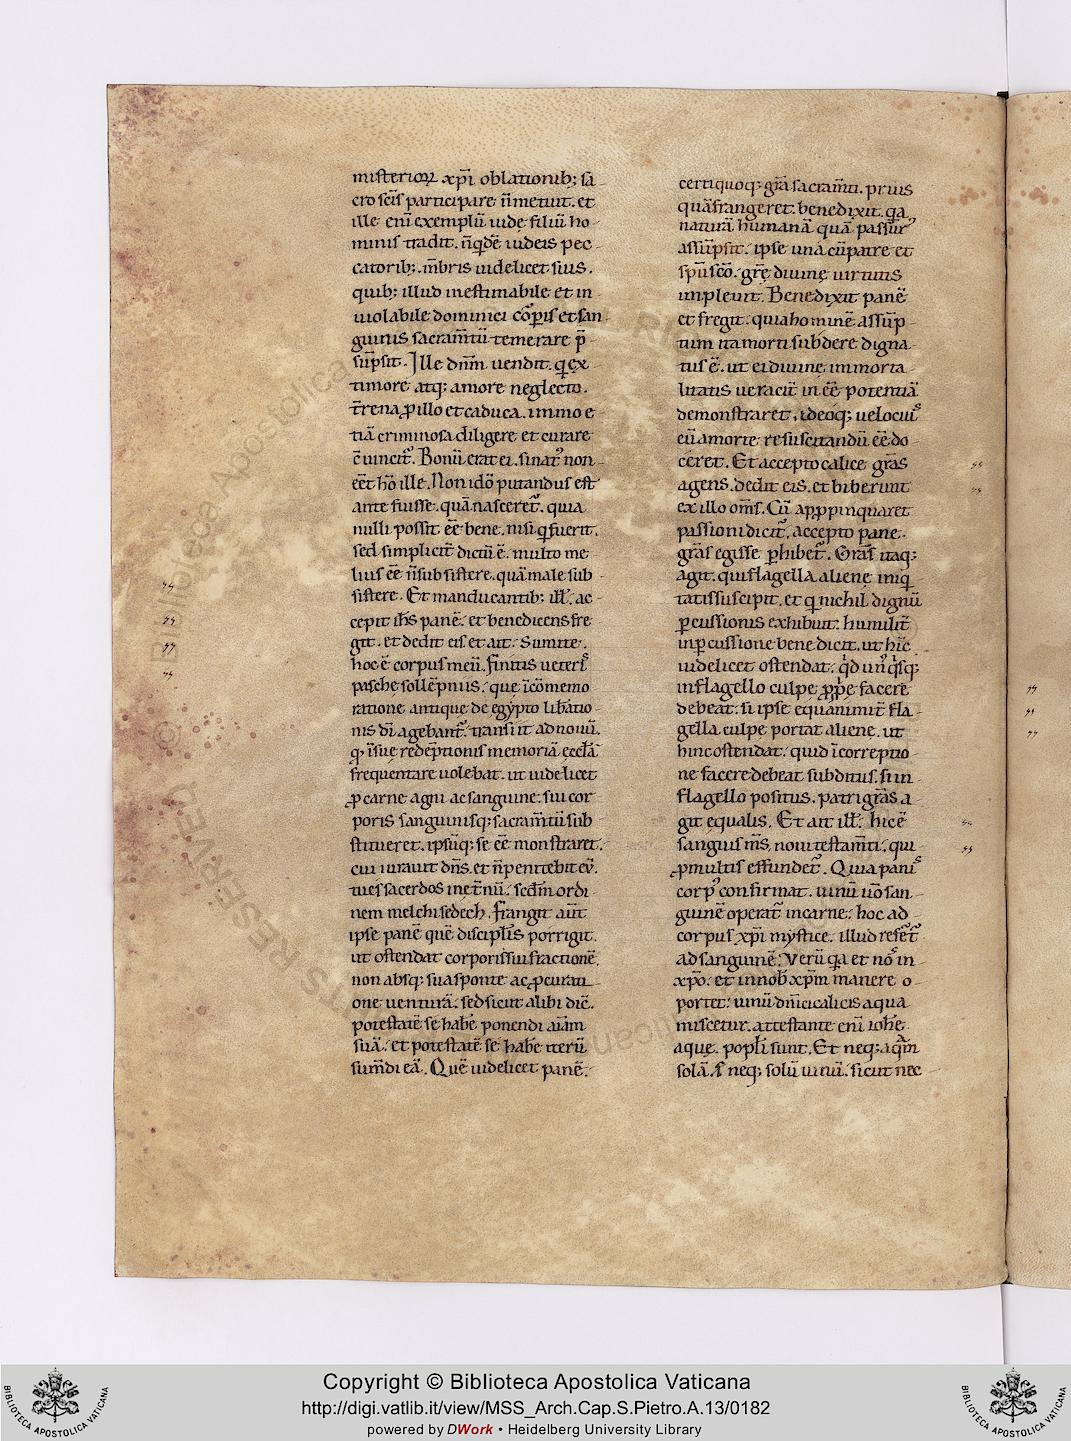 misterioꝝ xp̃i oblationib; sa
cro sc̃is participare ñ metuit. et
ille eni exemplũ iude filiũ ho
minis tradit. ñ qdẽ iudeis pec
catorib;. m̃bris uidelicet suis.
quib; illud inestimabile et in
uiolabile dominici cõꝑis et san
guinis sacram̃tũ temerare p̃
sũpsit. Ille dnm̃ uendit. q̇ ex
timore atq; amore neglecto.
t̃rena ꝓ illo et caduca. immo e
tiã criminosa diligere et curare
c̃uincit̃. Bonũ erat ei. si natꝰ non
eẽt hõ ille. Non idõ putandus est
ante fuisse. quã nasceret̃. quia
nulli possit eẽ bene. nisi q̇ fuerit.
sed simplicit̃ dictũ ẽ. multo me
lius eẽ ñ subsistere. quã male sub
sistere. Et manducantib; ill̃. ac
cepit ih̃s panẽ. et benedicens fre
git. et dedit eis. et ait. Sumite.
hoc ẽ corpus meũ. Finitis ueterꝭ
pasche sollẽpniis. que ĩ cõmemo
ratione antique de egypto libatio
nis dĩ agebant̃. transiit ad nouũ.
q̇ ĩ sue redẽptionis memoriã eccl̃ã
frequentare uolebat. ut uidelicet
ꝓ carne agni ac sanguine. sui cor
poris sanguinisq; sacram̃tũ sub
stitueret. ipsũq; se eẽ monstraret.
cui iurauit dñs. et ñ penitebit eũ.
tu es sacerdos in et̃nũ. scd̃m ordi
nem melchisedech. Frangit aũt
ipse panẽ quẽ discipl̃is porrigit.
ut ostendat corporis sui fractionẽ.
non absq; sua sponte ac ꝓcurati
one uenturã. sed sicut alibi dic̃.
potestatẽ se habẽ ponendi aĩam
suã. et potestatẽ se habẽ iterũ
sum̃di eã. Quẽ uidelicet panẽ.
certi quoq; gr̃a sacram̃ti. prius
quã frangeret. benedixit. qa
naturã humanã quã passurꝰ
assũpsit. ipse una cũ patre et
sp̃u sc̃o. gr̃e diuine uirtutis
impleuit. Benedixit panẽ
et fregit. quia hominẽ assũp
tum ita morti subdere digna
tus ẽ. ut ei diuine immorta
litatis ueracit̃ in eẽ potentiã
demonstraret. ideoq; uelociꝰ
eũ a morte resuscitandũ eẽ do
ceret. Et accepto calice gr̃as
agens. dedit eis. et biberunt
ex illo om̃s. Cũ appropinquaret
passioni dicit̃. accepto pane.
gr̃as egisse ꝑhibet̃. Gr̃as itaq;
agit. qui flagella aliene iniq̇
tatis suscipit. et q̇ nichil dignũ
ꝑcussionis exhibuit. humilit̃
in ꝑcussione benedicit. ut hic̃
uidelicet ostendat. q̇d unꝰ q̇sq;
in flagello culpe ꝓꝑe facere
debeat. si ipse equanimit̃ fla
gella culpe portat aliene. ut
hinc ostendat. quid ĩ correptio
ne facere debeat subditus. si in
flagello positus. patri gr̃as a
git equalis. Et ait ill̃. hic ẽ
sanguis mẽs noui testam̃ti. qui
ꝓ multis effundet̃. Quia panꝭ
corpꝰ confirmat. uinũ ũo san
guinẽ operat̃ in carne. hoc ad
corpus xp̃i mystice. illud refẽt̃
ad sanguinẽ. Verũ qa et noꝰ in
xp̃o. et in nob̃ xp̃m manere o
portet. uinũ dñici calicis aqua
miscetur. attestante eni ioh̃e.
aque. popl̃i sunt. Et neq; aq̃m
solã. ł neq; solũ uinũ. sicut nec
Copyright © Biblioteca Apostolica Vaticana
http://digi.vatlib.it/view/MSS_Arch.Cap.S.Pietro.A.13/0182
powered by DWork • Heidelberg University Library
BIBLIOTECA APOSTOLICA VATICANA
BIBLIOTECA APOSTOLICA VATICANA